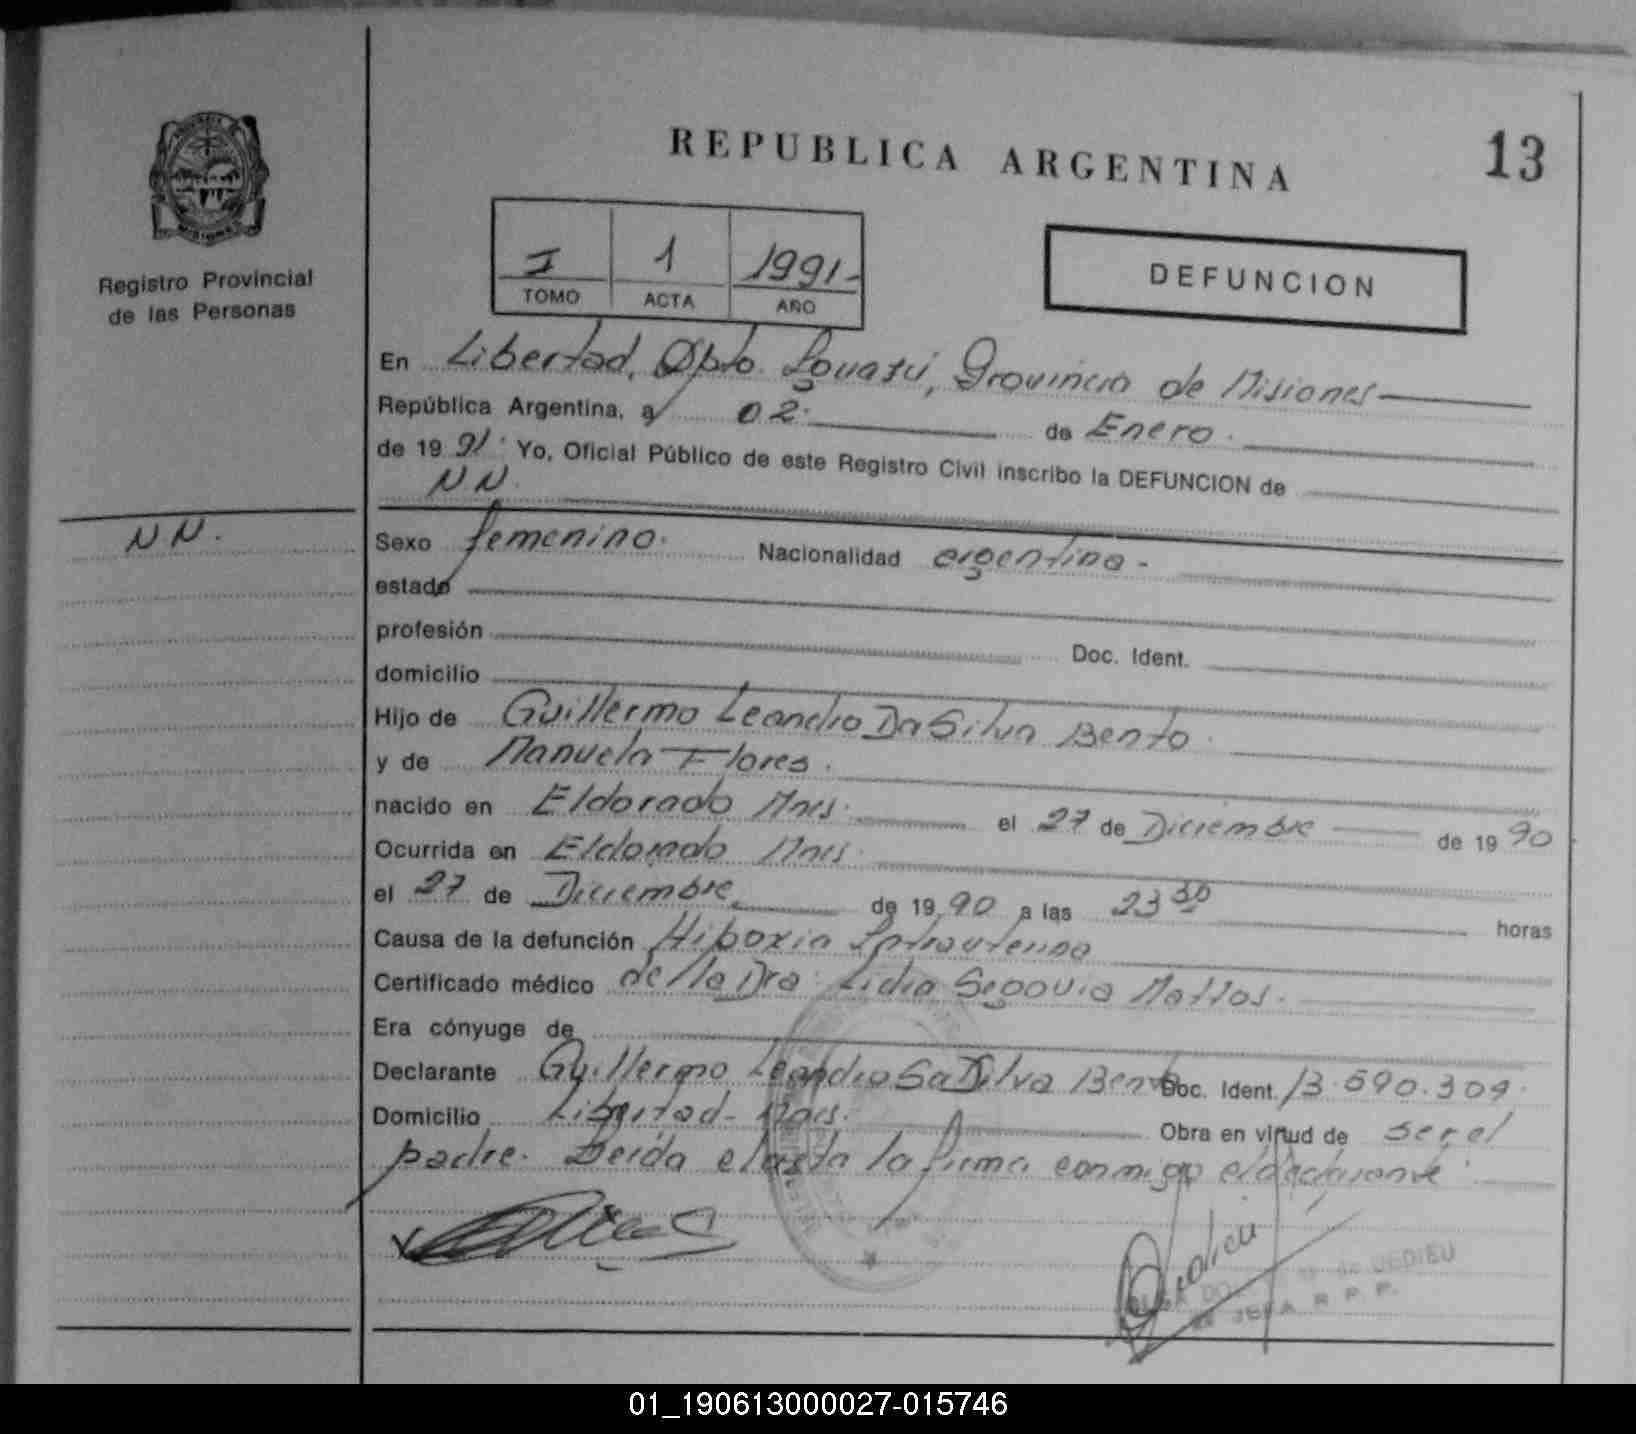 REPUBLICA ARGENTINA
13
Registro Provincial
de las Personas
I 1 1991-
TOMO ACTA AÑO
DEFUNCION
En Libertad, Dpto. Iguazú, Provincia de Misiones
República Argentina, a 02. de Enero.
de 1991. Yo, Oficial Público de este Registro Civil inscribo la DEFUNCION de
N.N.
N N.
Sexo femenino. Nacionalidad argentina -
estado
profesión Doc. Ident.
domicilio
Hijo de Guillermo Leandro Da Silva Bento.
y de Manuela Flores.
nacido en Eldorado Mnes. el 27 de Diciembre de 1990
Ocurrida en Eldorado Mnes.
el 27 de Diciembre de 1990 a las 23 30 horas
Causa de la defunción Hipoxia Intrauterina
Certificado médico de la Dra. Lidia Segovia Mattos.
Era cónyuge de
Declarante Guillermo Leandro Da Silva Bento Doc. Ident. 13.690.309.
Domicilio Libertad - Mnes. Obra en virtud de ser el
padre. Leída el acta la firma conmigo el declarante
de DEDIEU
JEFA R. P. P.
01_190613000027-015746